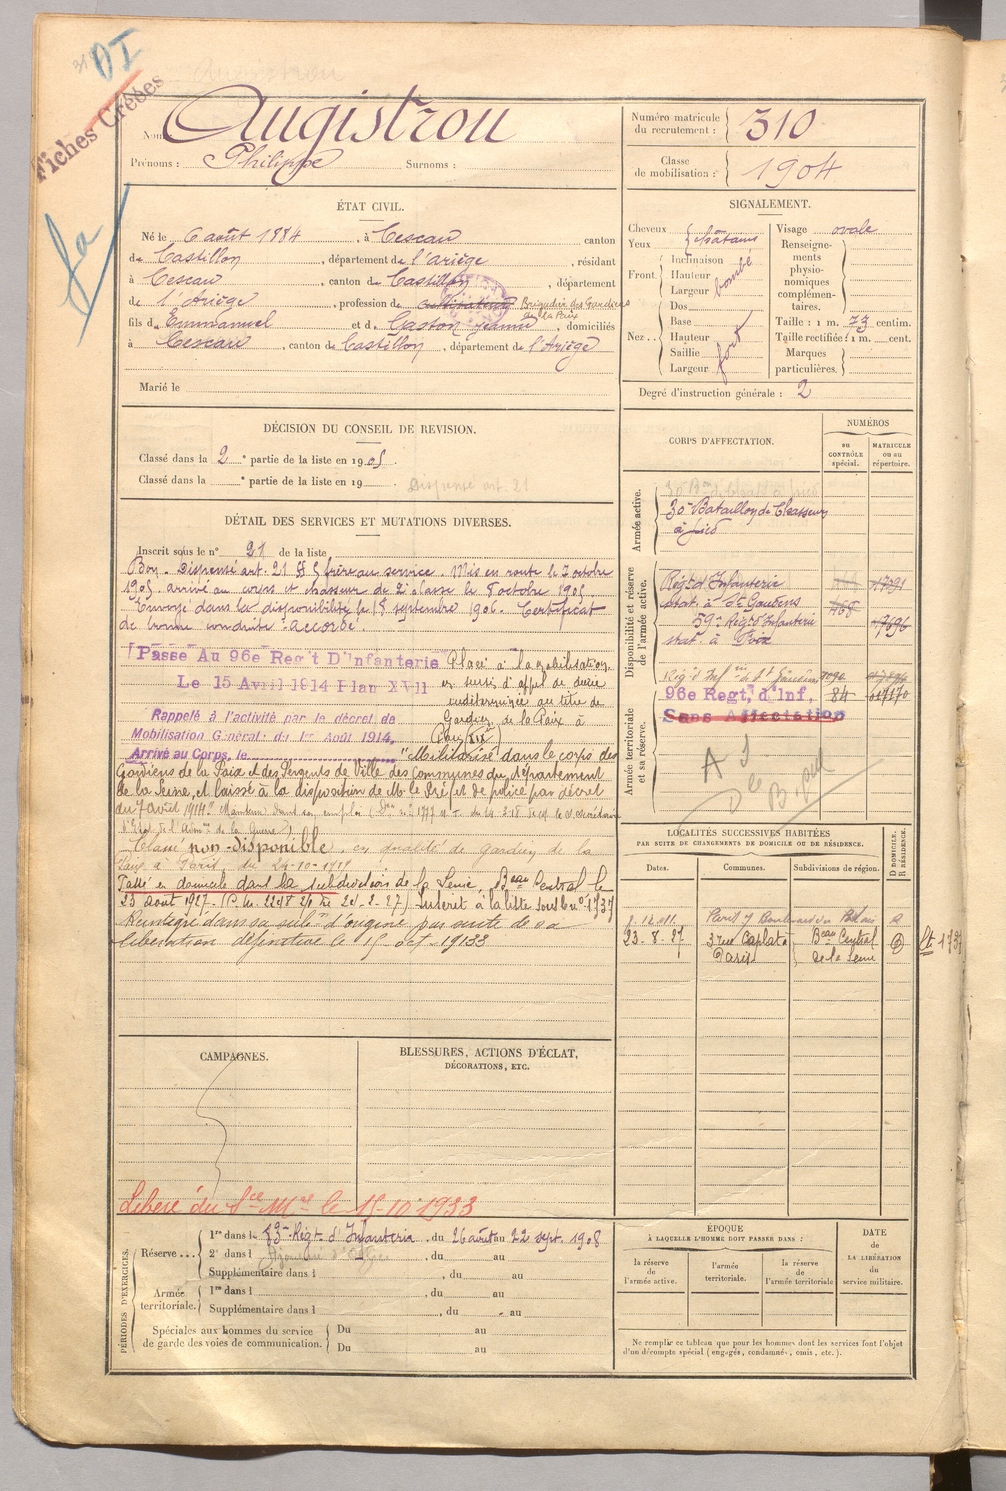 DI
Fiches Créées
Nom : Augistrou
Prénoms : Philippe Surnoms :
Numéro matricule du recrutement : 310
Classe de mobilisation : 1904
ÉTAT CIVIL.
Né le 6 août 1884, à Cescau canton
de Castillon, département de l'Ariège, résidant
à Cescau, canton de Castillon, département
de l'Ariège, profession de cultivateur Brigadier des Gardiens de la Paix
fils d'Emmanuel et de Gaston Jeanne, domiciliés
à Cescau, canton de Castillon, département de l'Ariège
Marié le
SIGNALEMENT.
Cheveux
Yeux châtains
Front. Inclinaison
Hauteur
Largeur
bombé
Nez. Dos
Base
Hauteur
Saillie
Largeur
fort
Visage ovale
Renseignements physionomiques complémentaires.
Taille : 1 m. 73 centim.
Taille rectifiée : 1 m. cent.
Marques particulières.
Degré d'instruction générale : 2
DÉCISION DU CONSEIL DE REVISION.
Classé dans la 2e partie de la liste en 1905.
Classé dans la e partie de la liste en 19
Dispensé art. 21
CORPS D'AFFECTATION.
NUMÉROS
au CONTRÔLE spécial.
MATRICULE ou au répertoire.
Armée active.
30e Bataillon de Chasseurs
à pied
Disponibilité et réserve de l'armée active.
Régt d'Infanterie
stat. à St Gaudens
468
59e Régt d'Infanterie
stat. à Foix
Armée territoriale et sa réserve.
96e Regt, d'Inf, 84
Sans Affectation
DÉTAIL DES SERVICES ET MUTATIONS DIVERSES.
Inscrit sous le n° 21 de la liste
Bon. Dispensé art. 21 § 5 frère au service. Mis en route le 7 octobre
1905. arrivé au corps et chasseur de 2e classe le 8 octobre 1905.
Envoyé dans la disponibilité le 18 septembre 1906. Certificat
de bonne conduite "accordé"
Passe Au 96e Reg't D'Infanterie
Le 15 Avril 1914 Plan XVII
Placé à la mobilisation
en sursis d'appel de durée
indéterminée au titre de
Gardien de la Paix à
Paris
Rappelé à l'activité par le décret de
Mobilisation Générale du 1er Août 1914,
Arrivé au Corps, le
"Militarisé dans le corps des
Gardiens de la Paix et des Sergents de Ville des communes du département
de la Seine, et laissé à la disposition de Mr le Préfet de police par décret
Classé non-disponible en qualité de gardien de la
Paix à Paris du 24-10-1919
Passé en domicile dans la subdivision de la Seine, Beau Central le
23 août 1927. Inscrit à la liste sous le n° 1737
Réintégré dans sa subon d'origine par suite de sa
libération définitive le 15 oct. 1933
LOCALITÉS SUCCESSIVES HABITÉES
PAR SUITE DE CHANGEMENTS DE DOMICILE OU DE RÉSIDENCE.
Dates. Communes. Subdivisions de région. D DOMICILE. R RÉSIDENCE.
23-8-27 3 rue Caplat Beau Central D
Paris de la Seine
CAMPAGNES.
BLESSURES, ACTIONS D'ÉCLAT,
DÉCORATIONS, ETC.
Libéré du Sce Mre le 15-10-1933
PÉRIODES D'EXERCICES.
Réserve... 1re dans le Régt d'Infanterie, du 26 août au 22 sept. 1908
2e dans l
Supplémentaire dans l , du au
Armée territoriale. 1re dans l , du au
Supplémentaire dans l , du au
Spéciales aux hommes du service de garde des voies de communication. Du au
Du au
ÉPOQUE
À LAQUELLE L'HOMME DOIT PASSER DANS :
la réserve de l'armée active.
l'armée territoriale.
la réserve de l'armée territoriale
DATE
de
LA LIBÉRATION
du
service militaire.
Ne remplir ce tableau que pour les hommes dont les services font l'objet
d'un décompte spécial (engagés, condamnés, omis, etc.).